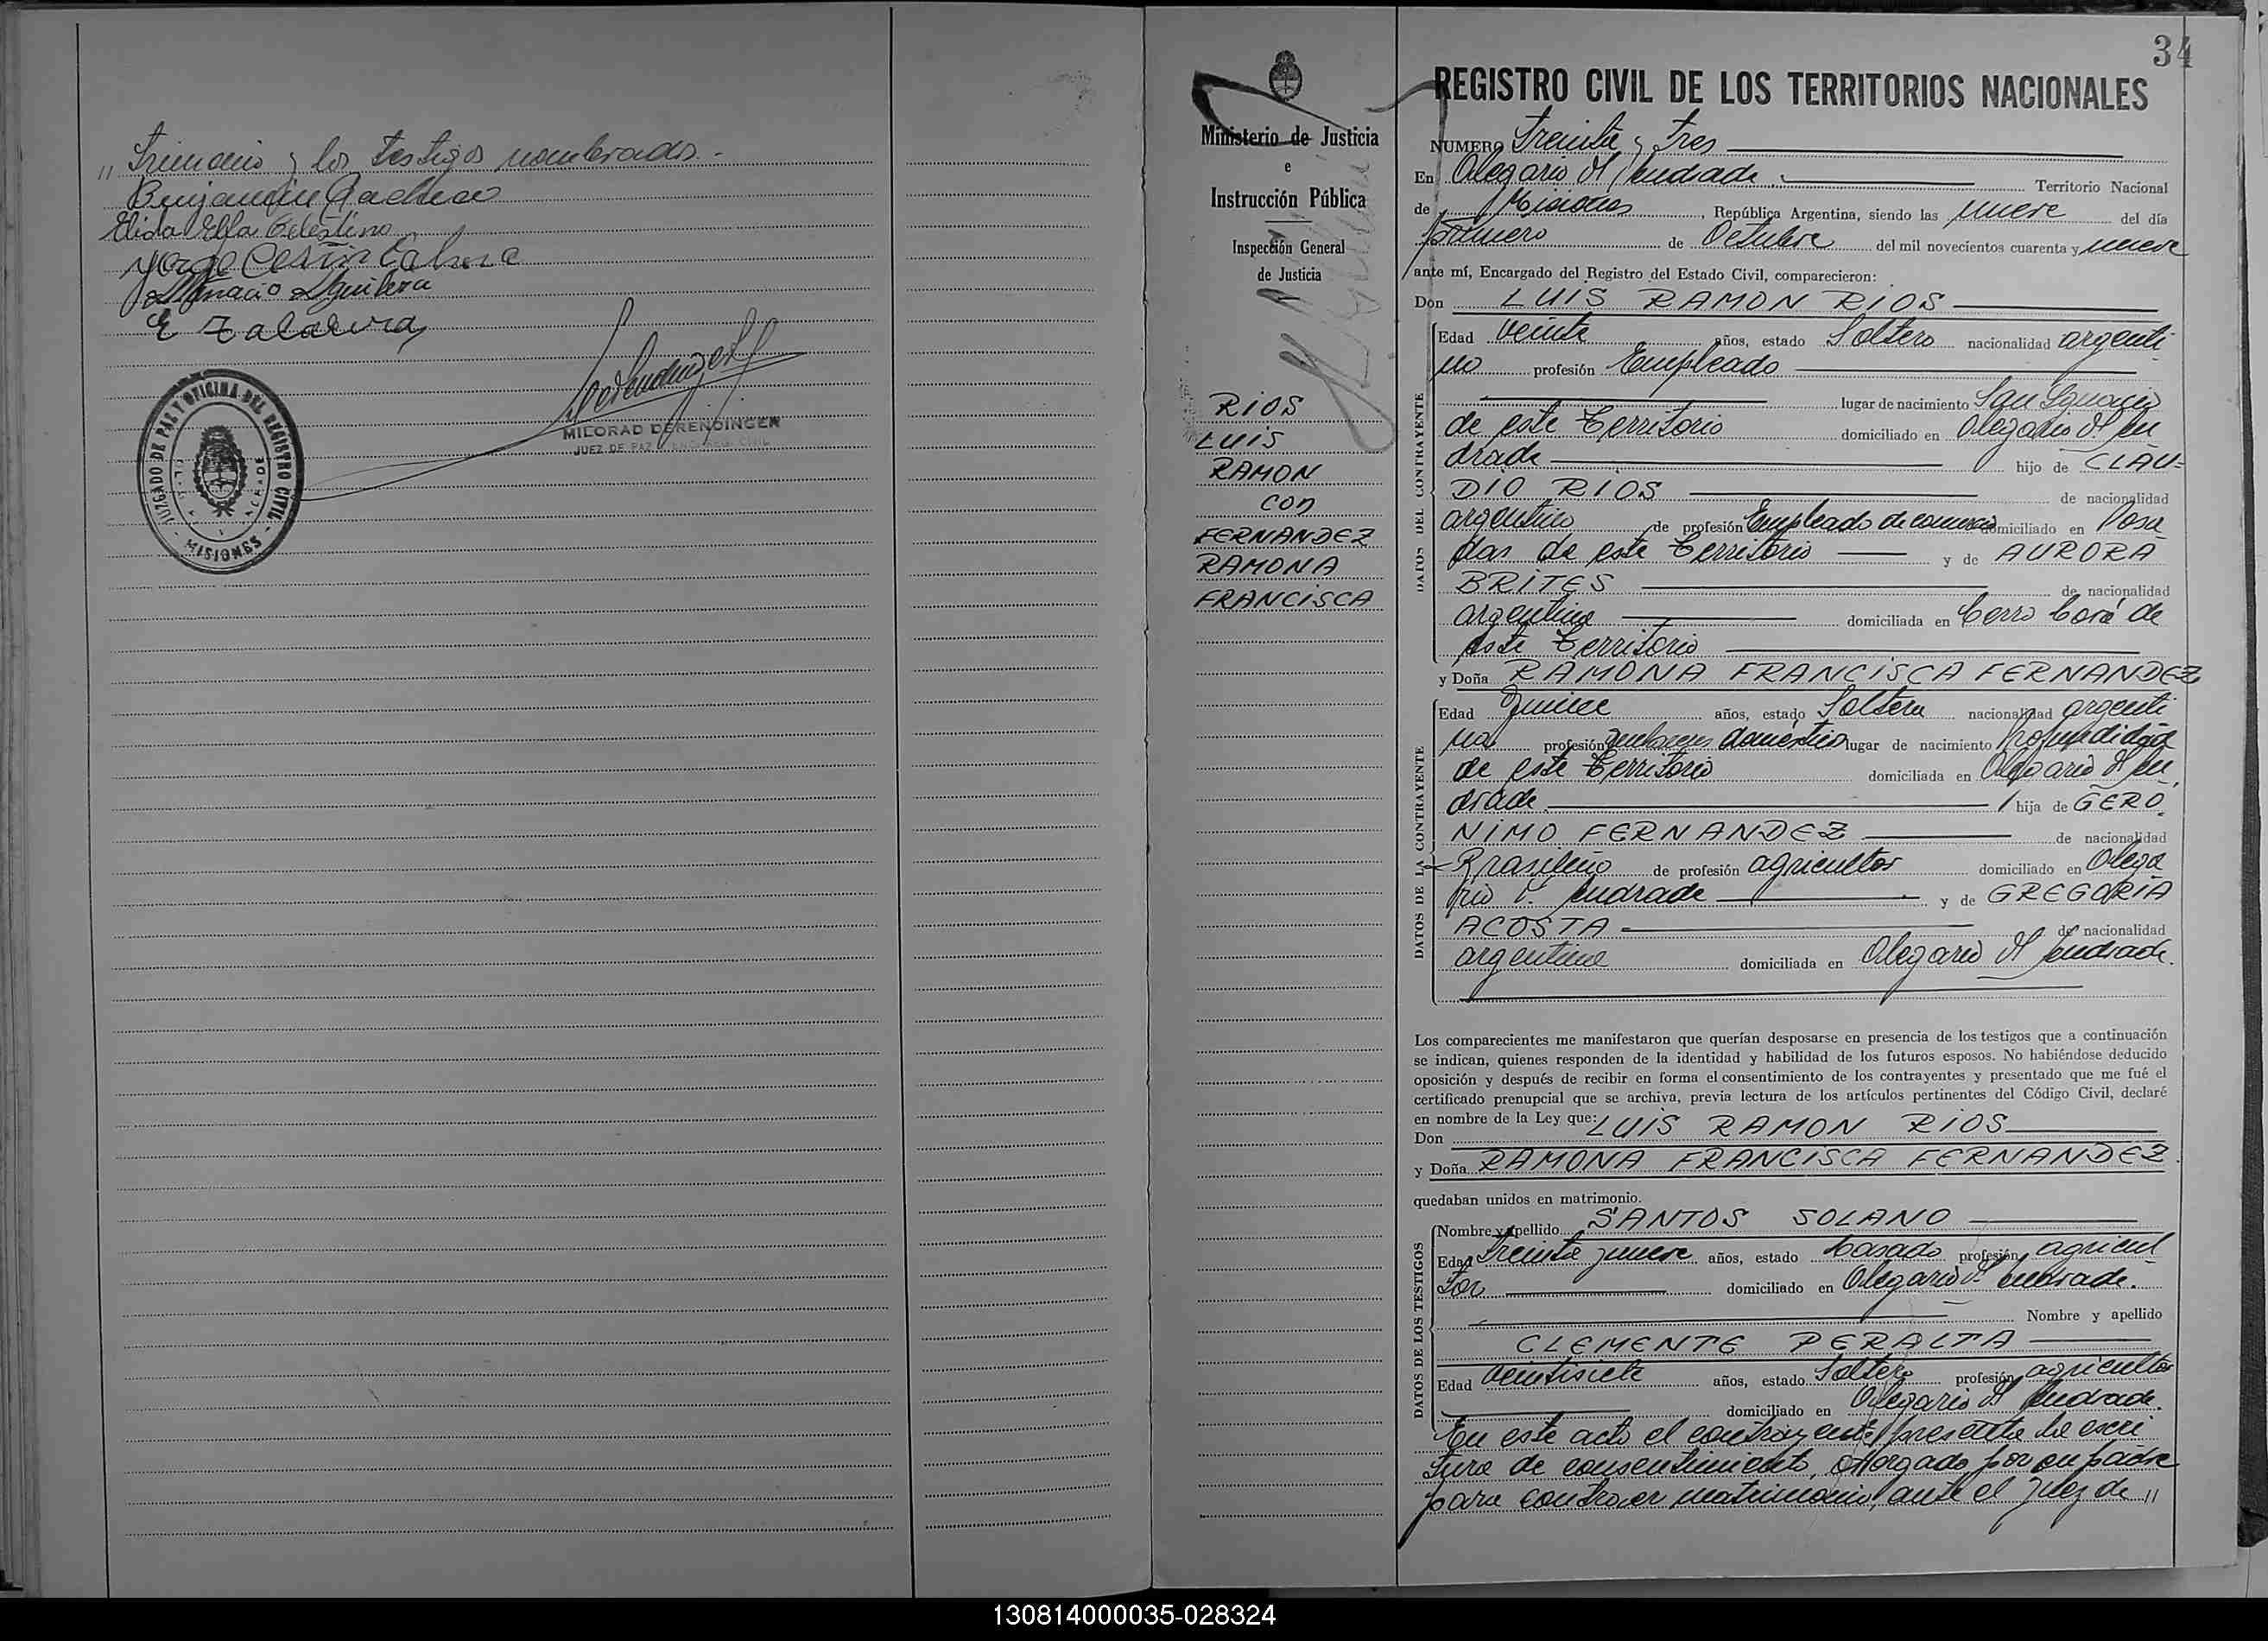 " trimonio y los testigos nombrados.-
Benjamín
Elida Elfa Celestino
Jorge
Ignacio Aguilera
E Talavera
MILORAD DERENDINGEN
JUEZ DE PAZ
JUZGADO DE PAZ Y OFICINA DEL REGISTRO CIVIL
- MISIONES -
34
Ministerio de Justicia
e
Instrucción Pública
Inspección General
de Justicia
RIOS
LUIS
RAMON
CON
FERNANDEZ
RAMONA
FRANCISCA
REGISTRO CIVIL DE LOS TERRITORIOS NACIONALES
NUMERO Treinta y tres
En Olegario V. Andrade. Territorio Nacional
de Misiones, República Argentina, siendo las nueve del día
primero de Octubre del mil novecientos cuarenta y nueve
ante mí, Encargado del Registro del Estado Civil, comparecieron:
Don LUIS RAMON RIOS
DATOS DEL CONTRAYENTE
Edad veinte años, estado Soltero nacionalidad argenti
no profesión Empleado
lugar de nacimiento San Ignacio
de este Territorio domiciliado en Olegario V. An
drade hijo de CLAU=
DIO RIOS de nacionalidad
argentino de profesión Empleado de comercio domiciliado en Posa
das de este Territorio y de AURORA
BRITES de nacionalidad
argentina domiciliada en Cerro Corá de
este Territorio
y Doña RAMONA FRANCISCA FERNANDEZ
DATOS DE LA CONTRAYENTE
Edad Quince años, estado Soltera nacionalidad argenti
na profesión quehaceres domésticos lugar de nacimiento Profundidad
de este Territorio domiciliada en Olegario V. An
drade hija de GERO
NIMO FERNANDEZ de nacionalidad
Brasileño de profesión agricultor domiciliado en Olega
rio V. Andrade y de GREGORIA
ACOSTA de nacionalidad
argentina domiciliada en Olegario V. Andrade.
Los comparecientes me manifestaron que querían desposarse en presencia de los testigos que a continuación
se indican, quienes responden de la identidad y habilidad de los futuros esposos. No habiéndose deducido
oposición y después de recibir en forma el consentimiento de los contrayentes y presentado que me fué el
certificado prenupcial que se archiva, previa lectura de los artículos pertinentes del Código Civil, declaré
en nombre de la Ley que:
Don LUIS RAMON RIOS
y Doña RAMONA FRANCISCA FERNANDEZ
quedaban unidos en matrimonio.
DATOS DE LOS TESTIGOS
Nombre y apellido SANTOS SOLANO
Edad Treinta y nueve años, estado Casado profesión agricul
tor domiciliado en Olegario V. Andrade.
Nombre y apellido
CLEMENTE PERALTA
Edad veintisiete años, estado Soltero profesión agricultor
domiciliado en Olegario V. Andrade.
En este acto el contrayente presenta la escri
tura de consentimiento, otorgado por su padre
para contraer matrimonio, ante el Juez de "
130814000035-028324